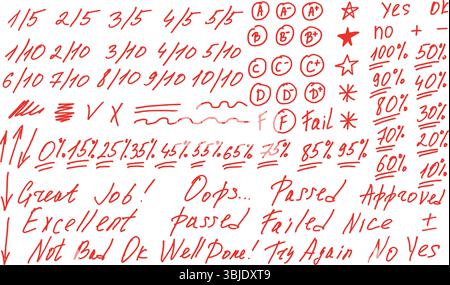 1/5 2/5 3/5 4/5 5/5 A A- A+ yes OK
1/10 2/10 3/10 4/10 5/10 B B- B+ no + -
6/10 7/10 8/10 9/10 10/10 C C- C+ 100% 50%
V X D D- D+ 90% 40%
F F Fail 80% 30%
0% 15% 25% 35% 45% 55% 65% 75% 85% 95% 70% 20%
60% 10%
Great Job! Oops... Passed Approved
Excellent passed Failed Nice ±
Not Bad Ok Well Done! Try Again No Yes
alamy
Image ID: 3BJDXT9
www.alamy.com